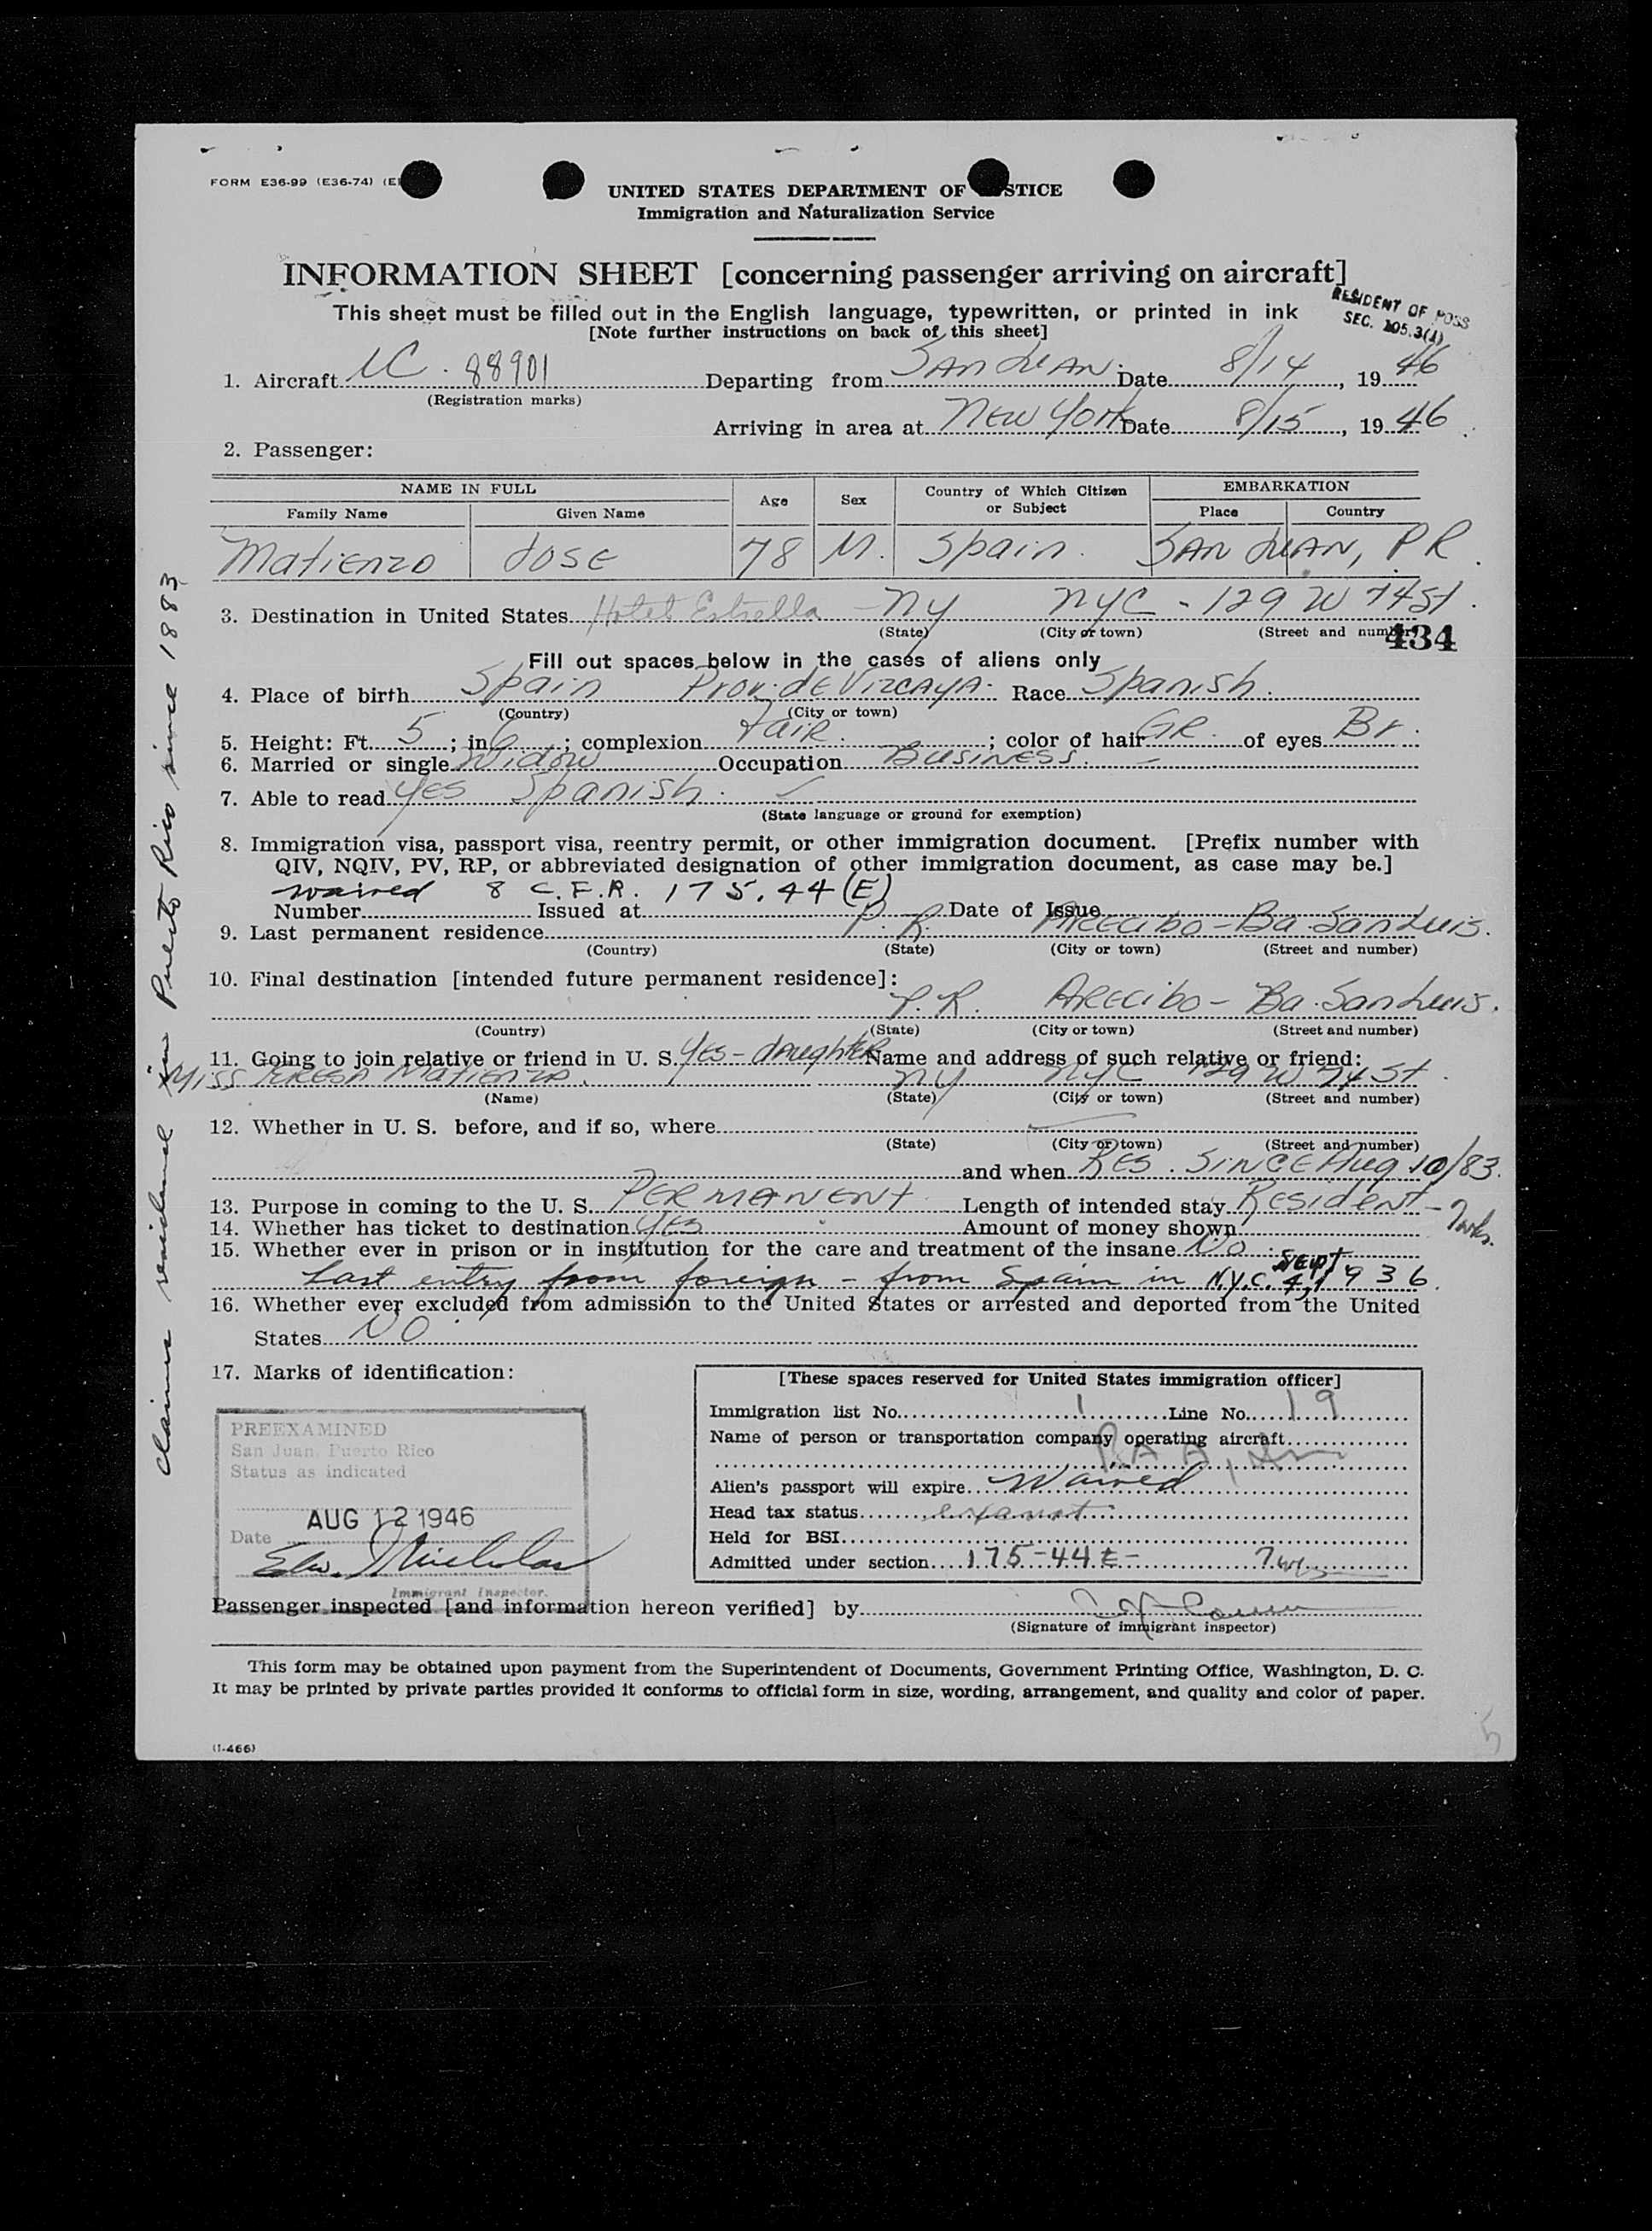 FORM E36-99 (E36-74) (E
UNITED STATES DEPARTMENT OF STICE
Immigration and Naturalization Service
INFORMATION SHEET [concerning passenger arriving on aircraft]
This sheet must be filled out in the English language, typewritten, or printed in ink
[Note further instructions on back of this sheet]
RESIDENT OF POSS
SEC. 105.3(1)
1. Aircraft NC. 88901 Departing from SAN JUAN. Date 8/14, 1946
(Registration marks)
Arriving in area at NEW YORK Date 8/15, 1946
2. Passenger:
NAME IN FULL Age Sex Country of Which Citizen or Subject EMBARKATION
Family Name Given Name Place Country
Matienzo JOSE 78 M. Spain. SAN JUAN, PR.
3. Destination in United States Hotel Estrella - NY NYC - 129 W 74 St.
(State) (City or town) (Street and number)
434
Fill out spaces below in the cases of aliens only
4. Place of birth Spain Prov. de Vizcaya. Race Spanish.
(Country) (City or town)
5. Height: Ft. 5; in. 6; complexion Fair.; color of hair GR. of eyes Br.
6. Married or single Widow Occupation BUSINESS. -
7. Able to read Yes Spanish.
(State language or ground for exemption)
8. Immigration visa, passport visa, reentry permit, or other immigration document. [Prefix number with
QIV, NQIV, PV, RP, or abbreviated designation of other immigration document, as case may be.]
waived 8 C.F.R. 175.44 (E)
Number Issued at Date of Issue
9. Last permanent residence P.R. Arecibo - Ba. San Luis.
(Country) (State) (City or town) (Street and number)
10. Final destination [intended future permanent residence]:
P.R. Arecibo - Ba. San Luis.
(Country) (State) (City or town) (Street and number)
11. Going to join relative or friend in U. S. Yes - daughter Name and address of such relative or friend:
Miss Teresa Matienzo. NY NYC 129 W 74 St.
(Name) (State) (City or town) (Street and number)
12. Whether in U. S. before, and if so, where
(State) (City or town) (Street and number)
and when Res. SINCE Aug 10/83.
13. Purpose in coming to the U. S. PERMANENT Length of intended stay Resident - 2 wks.
14. Whether has ticket to destination Yes Amount of money shown
15. Whether ever in prison or in institution for the care and treatment of the insane No
Last entry from foreign - from Spain in N.Y.C. Sept 4, 1936.
16. Whether ever excluded from admission to the United States or arrested and deported from the United
States NO
17. Marks of identification:
PREEXAMINED
San Juan, Puerto Rico
Status as indicated
AUG 12 1946
Date
Immigrant Inspector.
[These spaces reserved for United States immigration officer]
Immigration list No. 1 Line No. 19
Name of person or transportation company operating aircraft
PAA
Alien's passport will expire Waived
Head tax status exempt
Held for BSI
Admitted under section 175-44 E-
Passenger inspected [and information hereon verified] by
(Signature of immigrant inspector)
This form may be obtained upon payment from the Superintendent of Documents, Government Printing Office, Washington, D. C.
It may be printed by private parties provided it conforms to official form in size, wording, arrangement, and quality and color of paper.
(1-466)
5
Claims residence in Puerto Rico since 1883